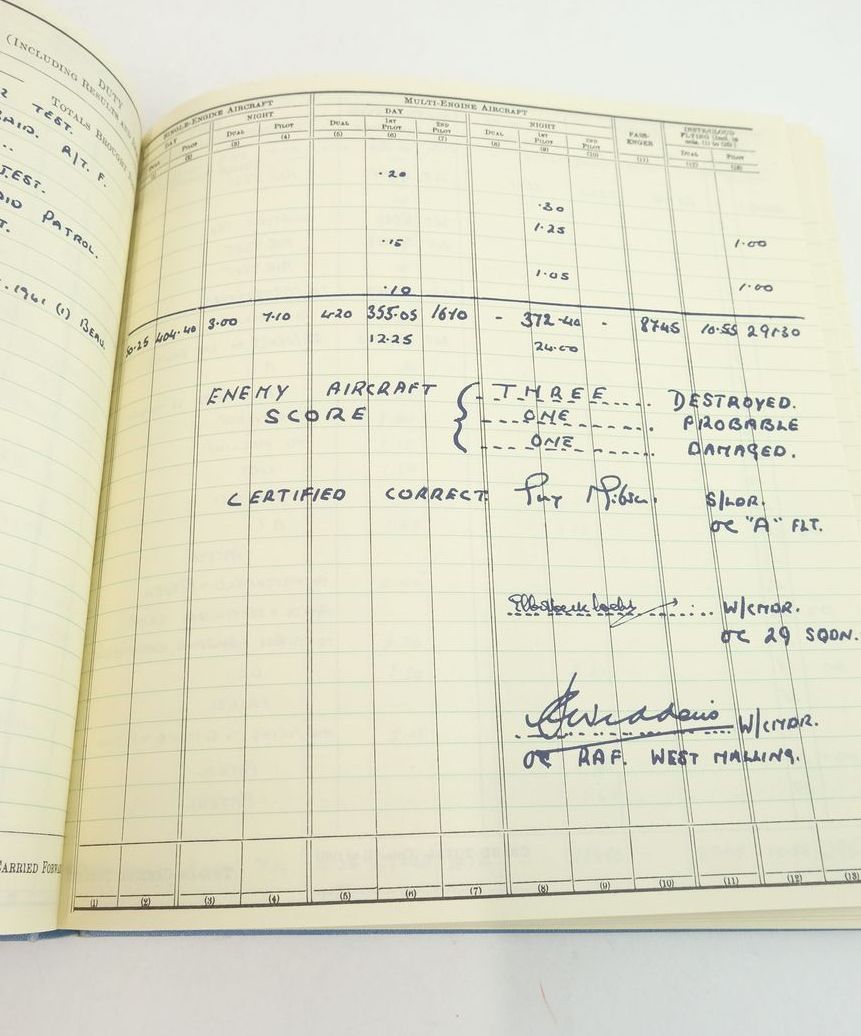 DUTY
(INCLUDING RESULTS AND
TOTALS BROUGHT
TEST.
RAID. A/T. F.
TEST.
PATROL.
1941 (1) BEAU.
CARRIED FORWA
SINGLE-ENGINE AIRCRAFT MULTI-ENGINE AIRCRAFT
DAY NIGHT DAY NIGHT PASS-ENGER INSTR/CLOUD FLYING (Incl. in cols. (1) to (10))
DUAL PILOT DUAL PILOT DUAL 1ST PILOT 2ND PILOT DUAL 1ST PILOT 2ND PILOT DUAL PILOT
(1) (2) (3) (4) (5) (6) (7) (8) (9) (10) (11) (12) (13)
.20
.30
1.25
.15 1.00
1.05
.10 1.00
404.40 3.00 7.10 4.20 355.05 16.10 - 372.40 - 87.45 10.55 29.30
12.25 24.00
ENEMY AIRCRAFT THREE DESTROYED.
SCORE ONE PROBABLE
ONE DAMAGED.
CERTIFIED CORRECT Guy Gibson. S/LDR.
OC "A" FLT.
W/CMDR.
OC 29 SQDN.
W/CMDR.
OC RAF. WEST MALLING.
(1) (2) (3) (4) (5) (6) (7) (8) (9) (10) (11) (12) (13)